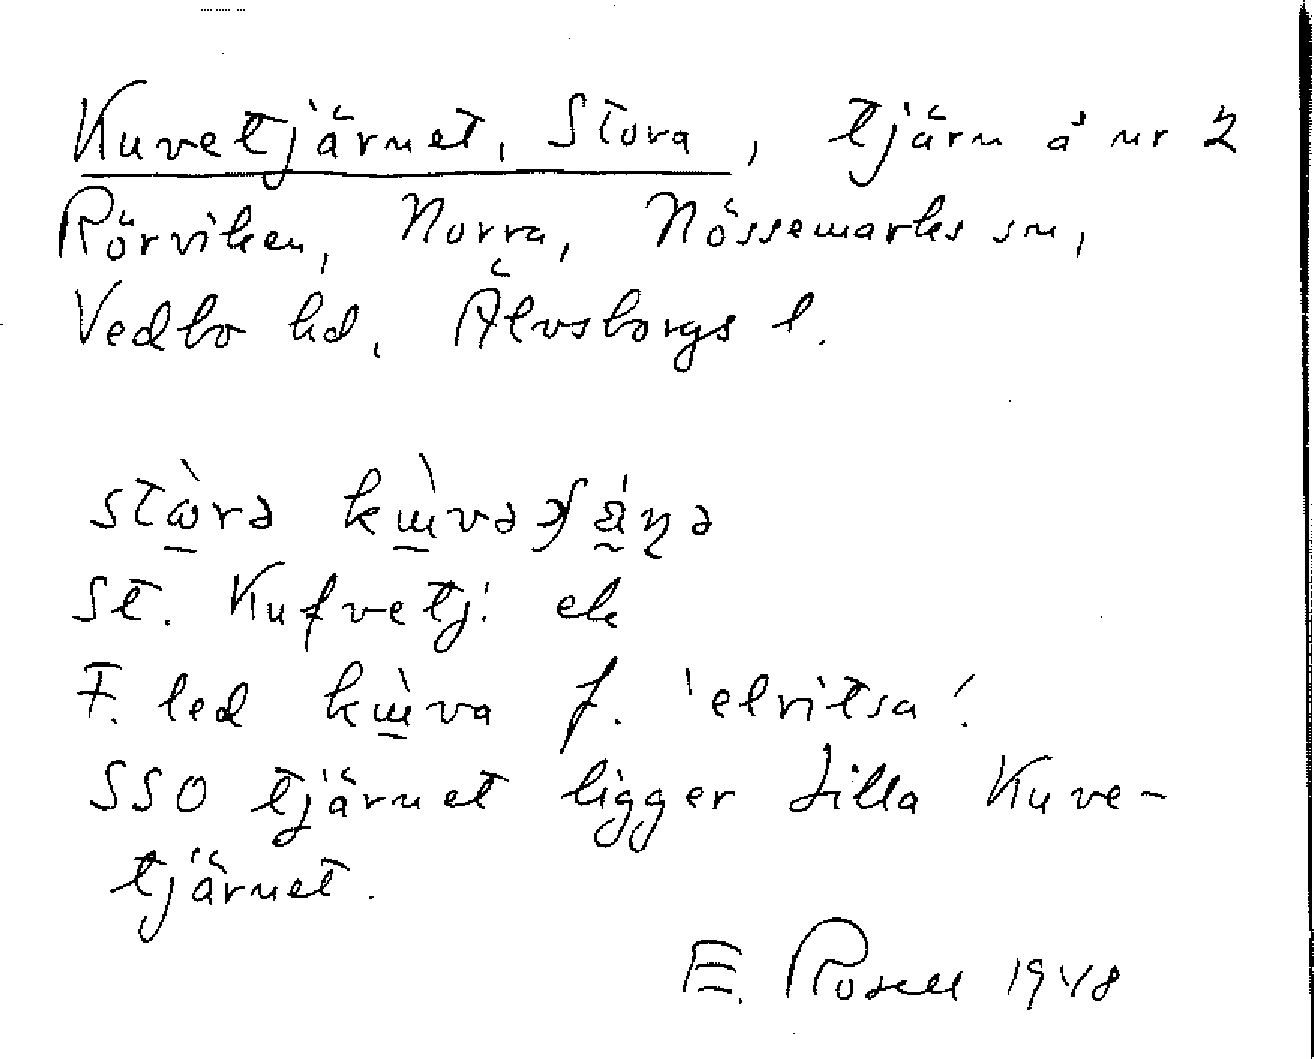 Kuvetjärnet, Stora, tjärn å nr 2
Rörviken, Norra, Nössemarks sn,
Vedbo hd, Älvsborgs l.
St. Kufvetj. ek
F. led f. 'elritsa'.
SSO tjärnet ligger Lilla Kuve-
tjärnet.
E. Rosell 1948